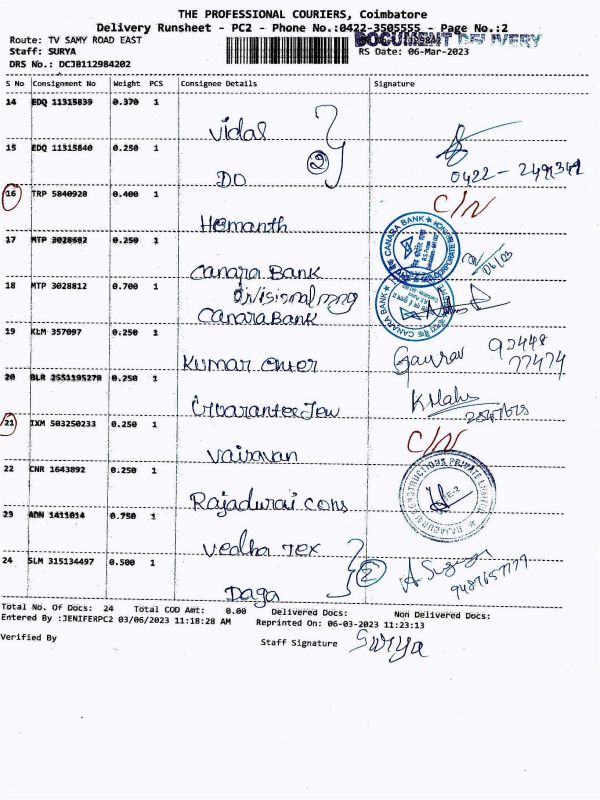 THE PROFESSIONAL COURIERS, Coimbatore
Delivery Runsheet - PC2 - Phone No.:0422-3505555 - Page No.:2
Route: TV SAMY ROAD EAST
DOCUMENT DELIVERY
Staff: SURYA
RS Date: 06-Mar-2023
DRS No.: DCJB112984202
S No Consignment No Weight PCS Consignee Details Signature
14 EDQ 11315839 0.370 1
Vidal
15 EDQ 11315840 0.250 1
2
DO
0422-2491341
16 TRP 5840928 0.400 1
C/N
Hemanth
17 MTP 3028682 0.250 1
CANARA BANK
Canara Bank
18 MTP 3028812 0.700 1
Divisional mng
Canara Bank
CANARA BANK
19 KLM 357097 0.250 1
Gaurav 92448
77474
Kumar
20 BLR 2551195278 0.250 1
21 IXM 503250233 0.250 1
C/N
Vairavan
22 CNR 1643892 0.250 1
RAJADURAI CONSTRUCTIONS PRIVATE LIMITED
Rajadurai Cons
23 ADN 1411014 0.750 1
Vedha Tex
24 SLM 315134497 0.500 1
2
Daga
Total No. Of Docs: 24 Total COD Amt: 0.00 Delivered Docs: Non Delivered Docs:
Entered By :JENIFERPC2 03/06/2023 11:18:28 AM Reprinted On: 06-03-2023 11:23:13
Verified By
Staff Signature Surya